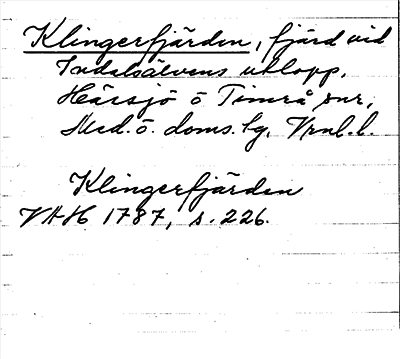 Klingerfjärden, fjärd vid
Indalsälvens utlopp,
Hässjö o Timrå snr,
Med. ö. doms. lg, Vrnl. l.
Klingerfjärden
VAH 1787, s. 226.